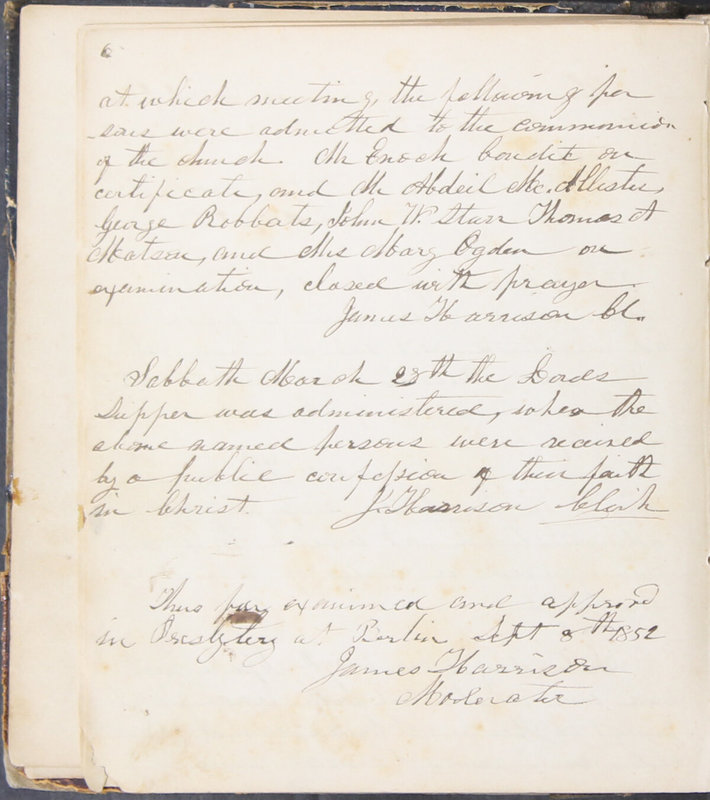 6
at which meeting, the following per
sons were admitted to the communion
of the church. Mr Enoch Condit on
certificate, and Mr Abdeil Mc. Allister,
George Robbarts, John W. Starr Thomas A
Matson, and Mrs Mary Ogden on
examination, closed with prayer.
James Harrison Cl.
Sabbath March 28th the Lords
Supper was administered, when the
above named persons were received
by a public confession of their faith
in Christ. J. Harrison Clerk
Thus far examined and approvd
in Presbytery at Berlin Sept 8th 1852
James Harrison
Moderator